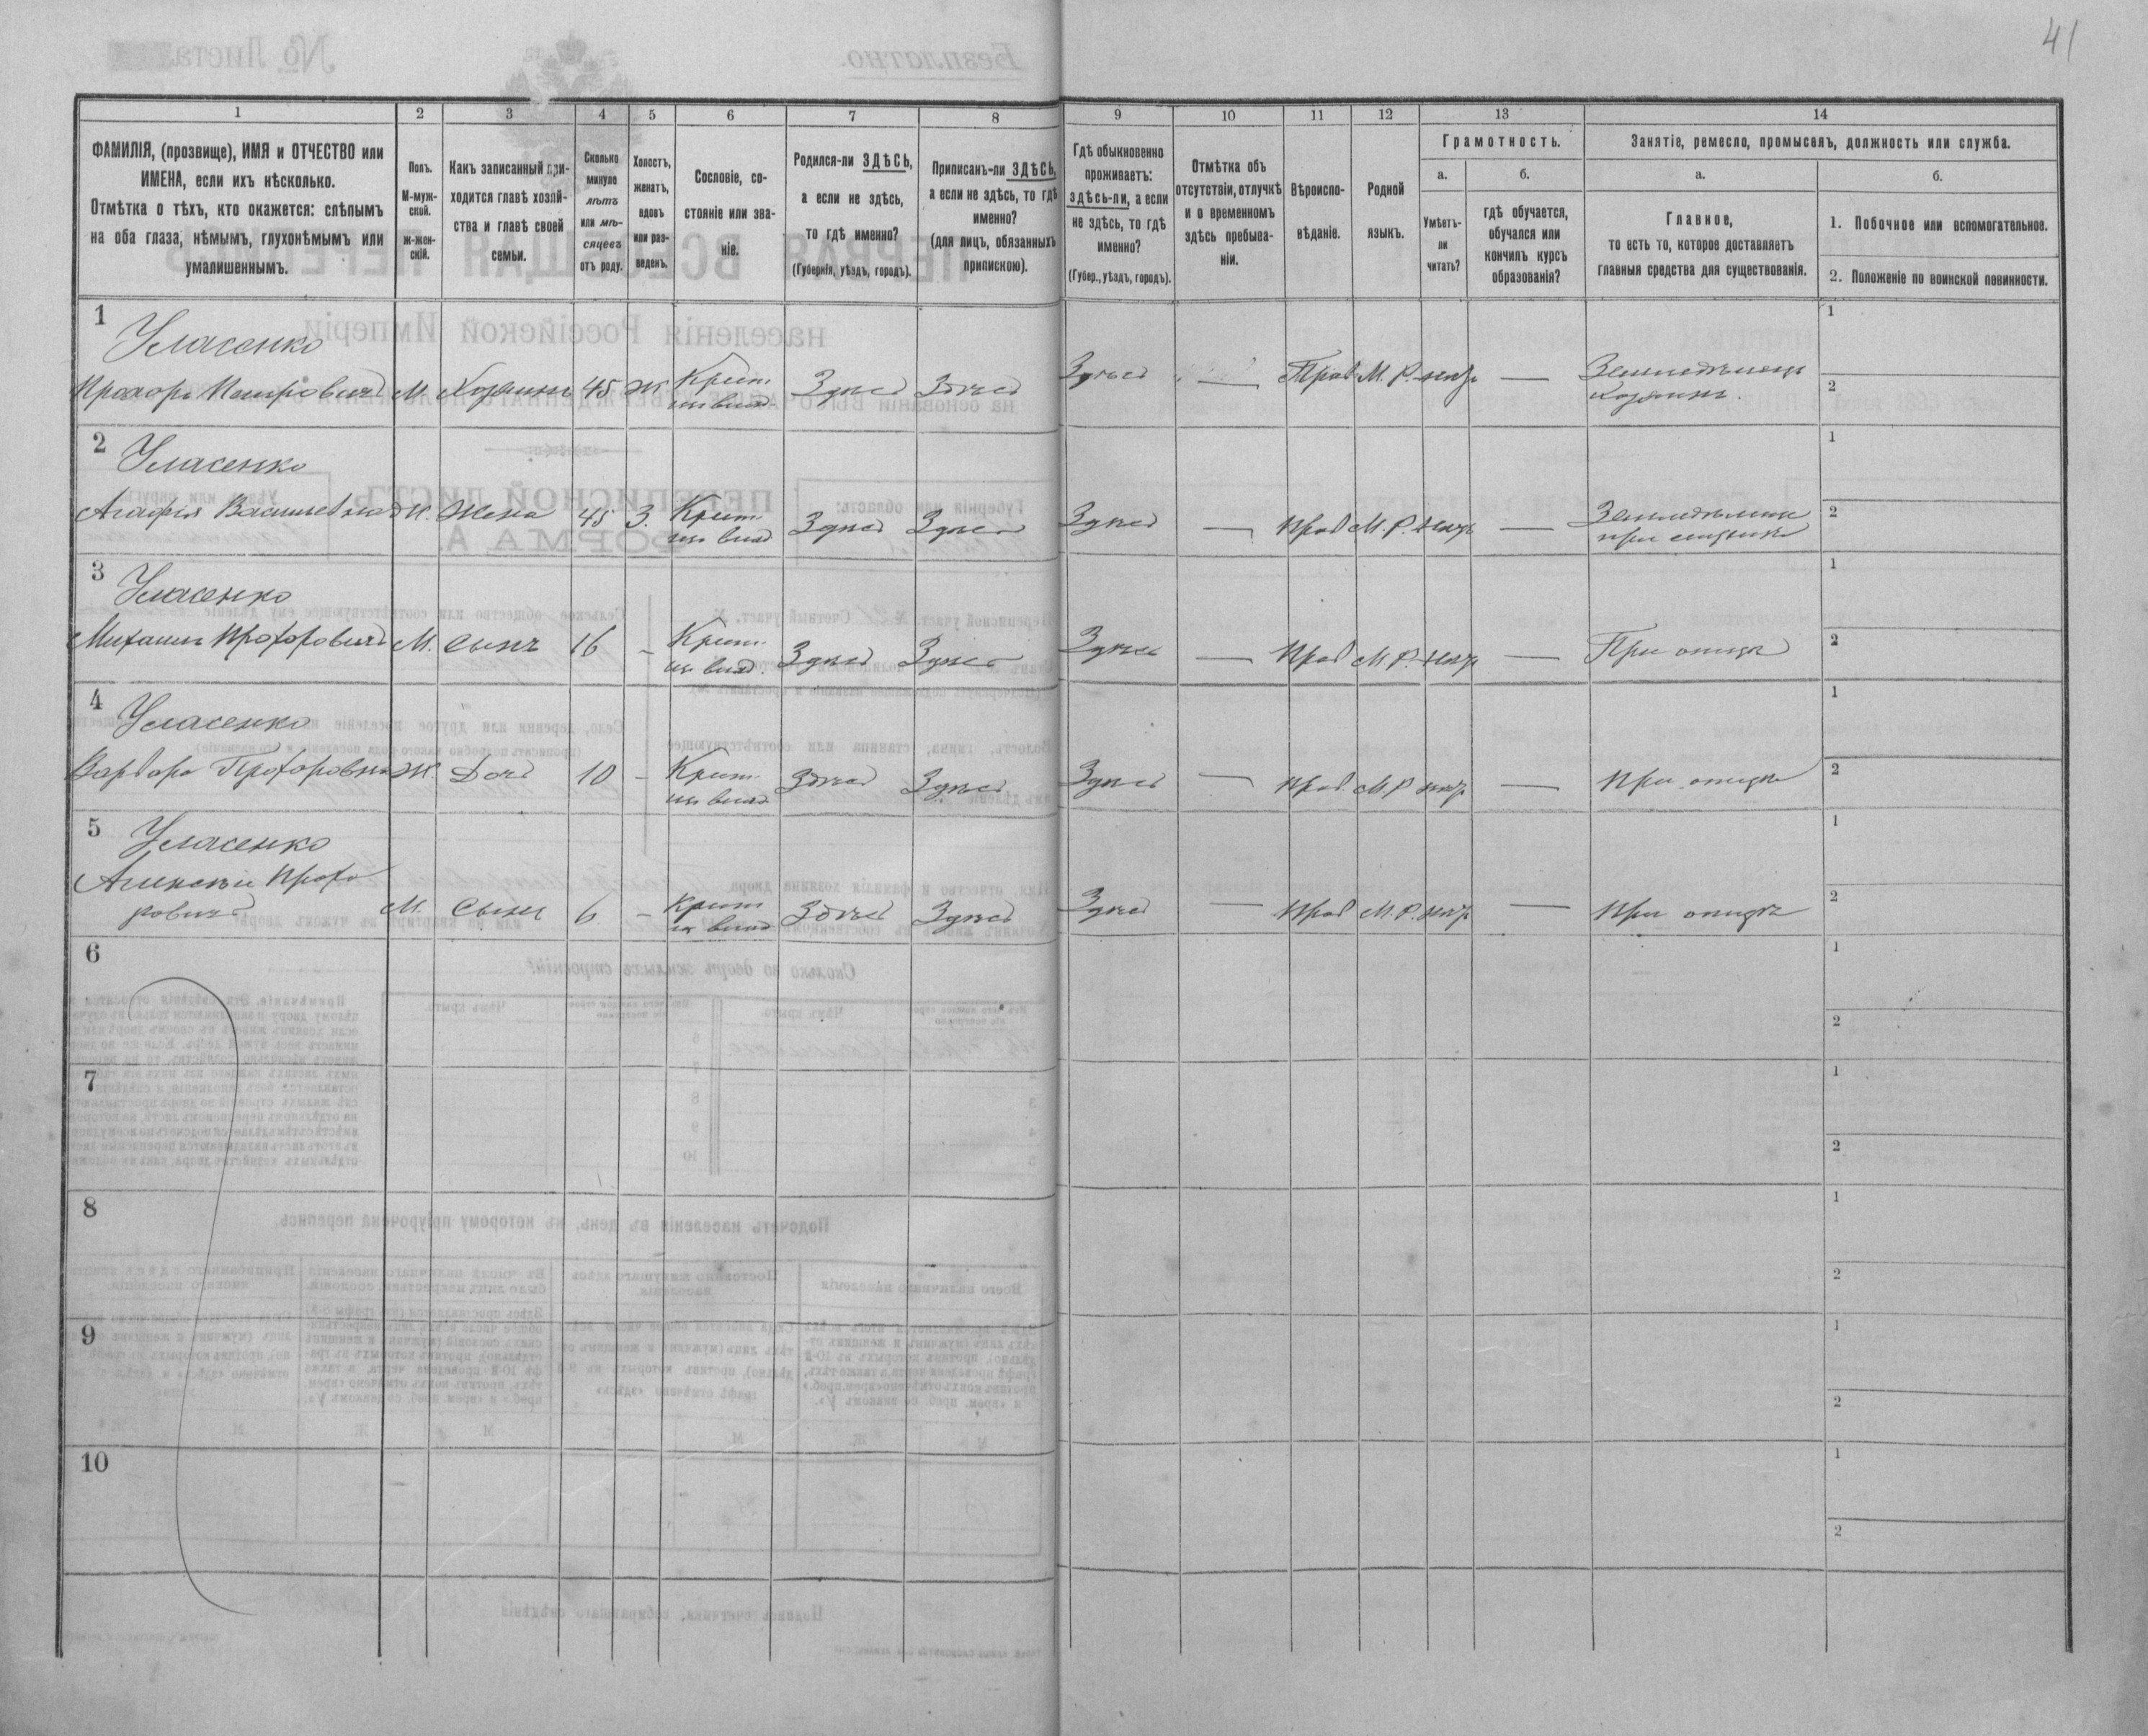 41
1
2
3
4
5
6
7
8
9
10
11
12
13
14
ФАМИЛІЯ, (прозвище), ИМЯ и ОТЧЕСТВО или
ИМЕНА, если ихъ нѣсколько.
Отмѣтка о тѣхъ, кто окажется: слѣпымъ
на оба глаза, нѣмымъ, глухонѣмымъ или
умалишеннымъ.
Полъ.
М-муж-
ской.
ж-жен-
скій.
Какъ записанный при-
ходится главѣ хозяй-
ства и главѣ своей
семьи.
Сколько
минуло
лѣтъ
или мѣ-
сяцевъ
отъ роду.
Холостъ,
женатъ,
вдовъ
или раз-
веденъ.
Сословіе, со-
стояніе или зва-
ніе.
Родился-ли ЗДѢСЬ,
а если не здѣсь,
то гдѣ именно?
(Губернія, уѣздъ, городъ).
Приписанъ-ли ЗДѢСЬ,
а если не здѣсь, то гдѣ
именно?
(для лицъ, обязанныхъ
припискою).
Гдѣ обыкновенно
проживаетъ:
здѣсь-ли, а если
не здѣсь, то гдѣ
именно?
(Губер., уѣздъ, городъ).
Отмѣтка объ
отсутствіи, отлучкѣ
и о временномъ
здѣсь пребыва-
ніи.
Вѣроиспо-
вѣданіе.
Родной
языкъ.
Грамотность.
а.
Умѣетъ-
ли
читать?
б.
гдѣ обучается,
обучался или
кончилъ курсъ
образованія?
Занятіе, ремесло, промыселъ, должность или служба.
а.
Главное,
то есть то, которое доставляетъ
главныя средства для существованія.
б.
1. Побочное или вспомогательное.
2. Положеніе по воинской повинности.
1
Уласенко
Прохоръ Петровичъ М. Хозяинъ 45 Ж. Крест. Здѣсь Здѣсь Здѣсь — Прав. М. Р. — Земледѣлецъ
хозяинъ.
1
2
2
Уласенко
Агафія Васильевна Ж. Жена 45 З. Крест. Здѣсь Здѣсь Здѣсь — Прав М. Р. —
1
2
3
Уласенко
Михаилъ Прохоровичъ М. сынъ 16 – Крест. Здѣсь Здѣсь Здѣсь — Прав М. Р. — При отцѣ
1
2
4
Уласенко
Варвара Прохоровна Ж. Дочь 10 – Крест. Здѣсь Здѣсь Здѣсь — Прав. М. Р — При отцѣ
1
2
5
Уласенко
Алексѣй Прохо
ровичъ М. Сынъ 6 – Крест Здѣсь Здѣсь Здѣсь — Прав М. Р. — При отцѣ
1
2
6
1
2
7
1
2
8
1
2
9
1
2
10
1
2